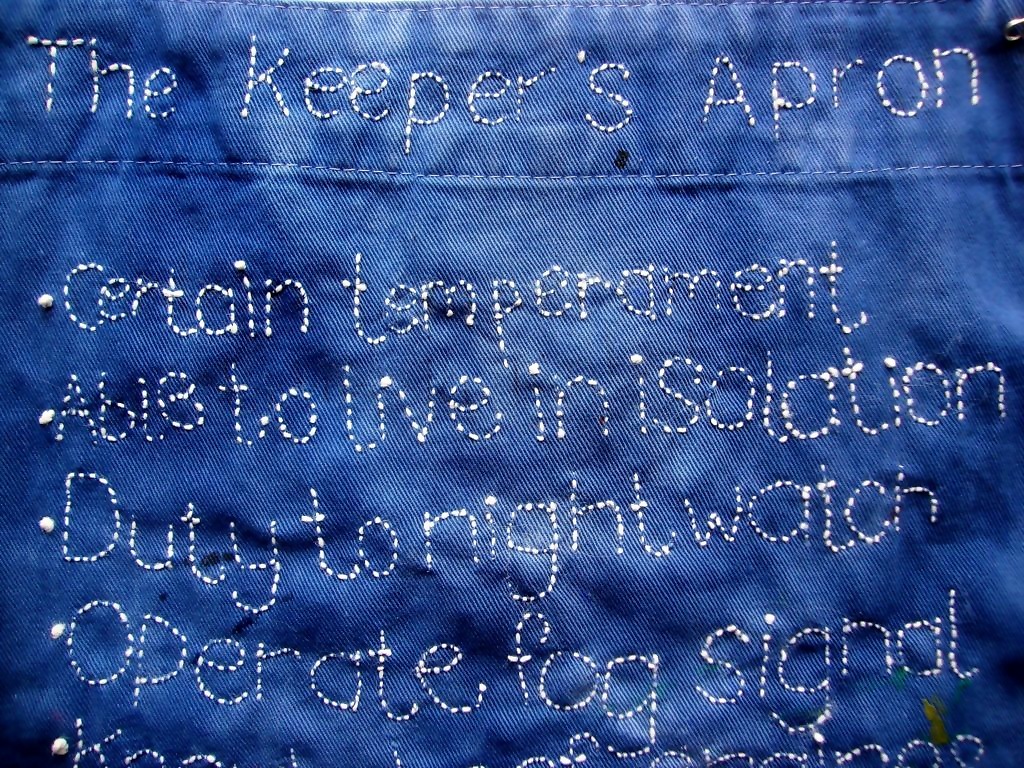 The Keeper's Apron
• Certain temperament
• Able to live in isolation
• Duty to night watch
• Operate fog signal